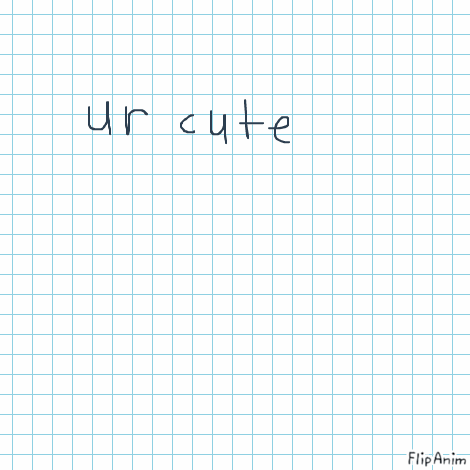 ur cute
FlipAnim